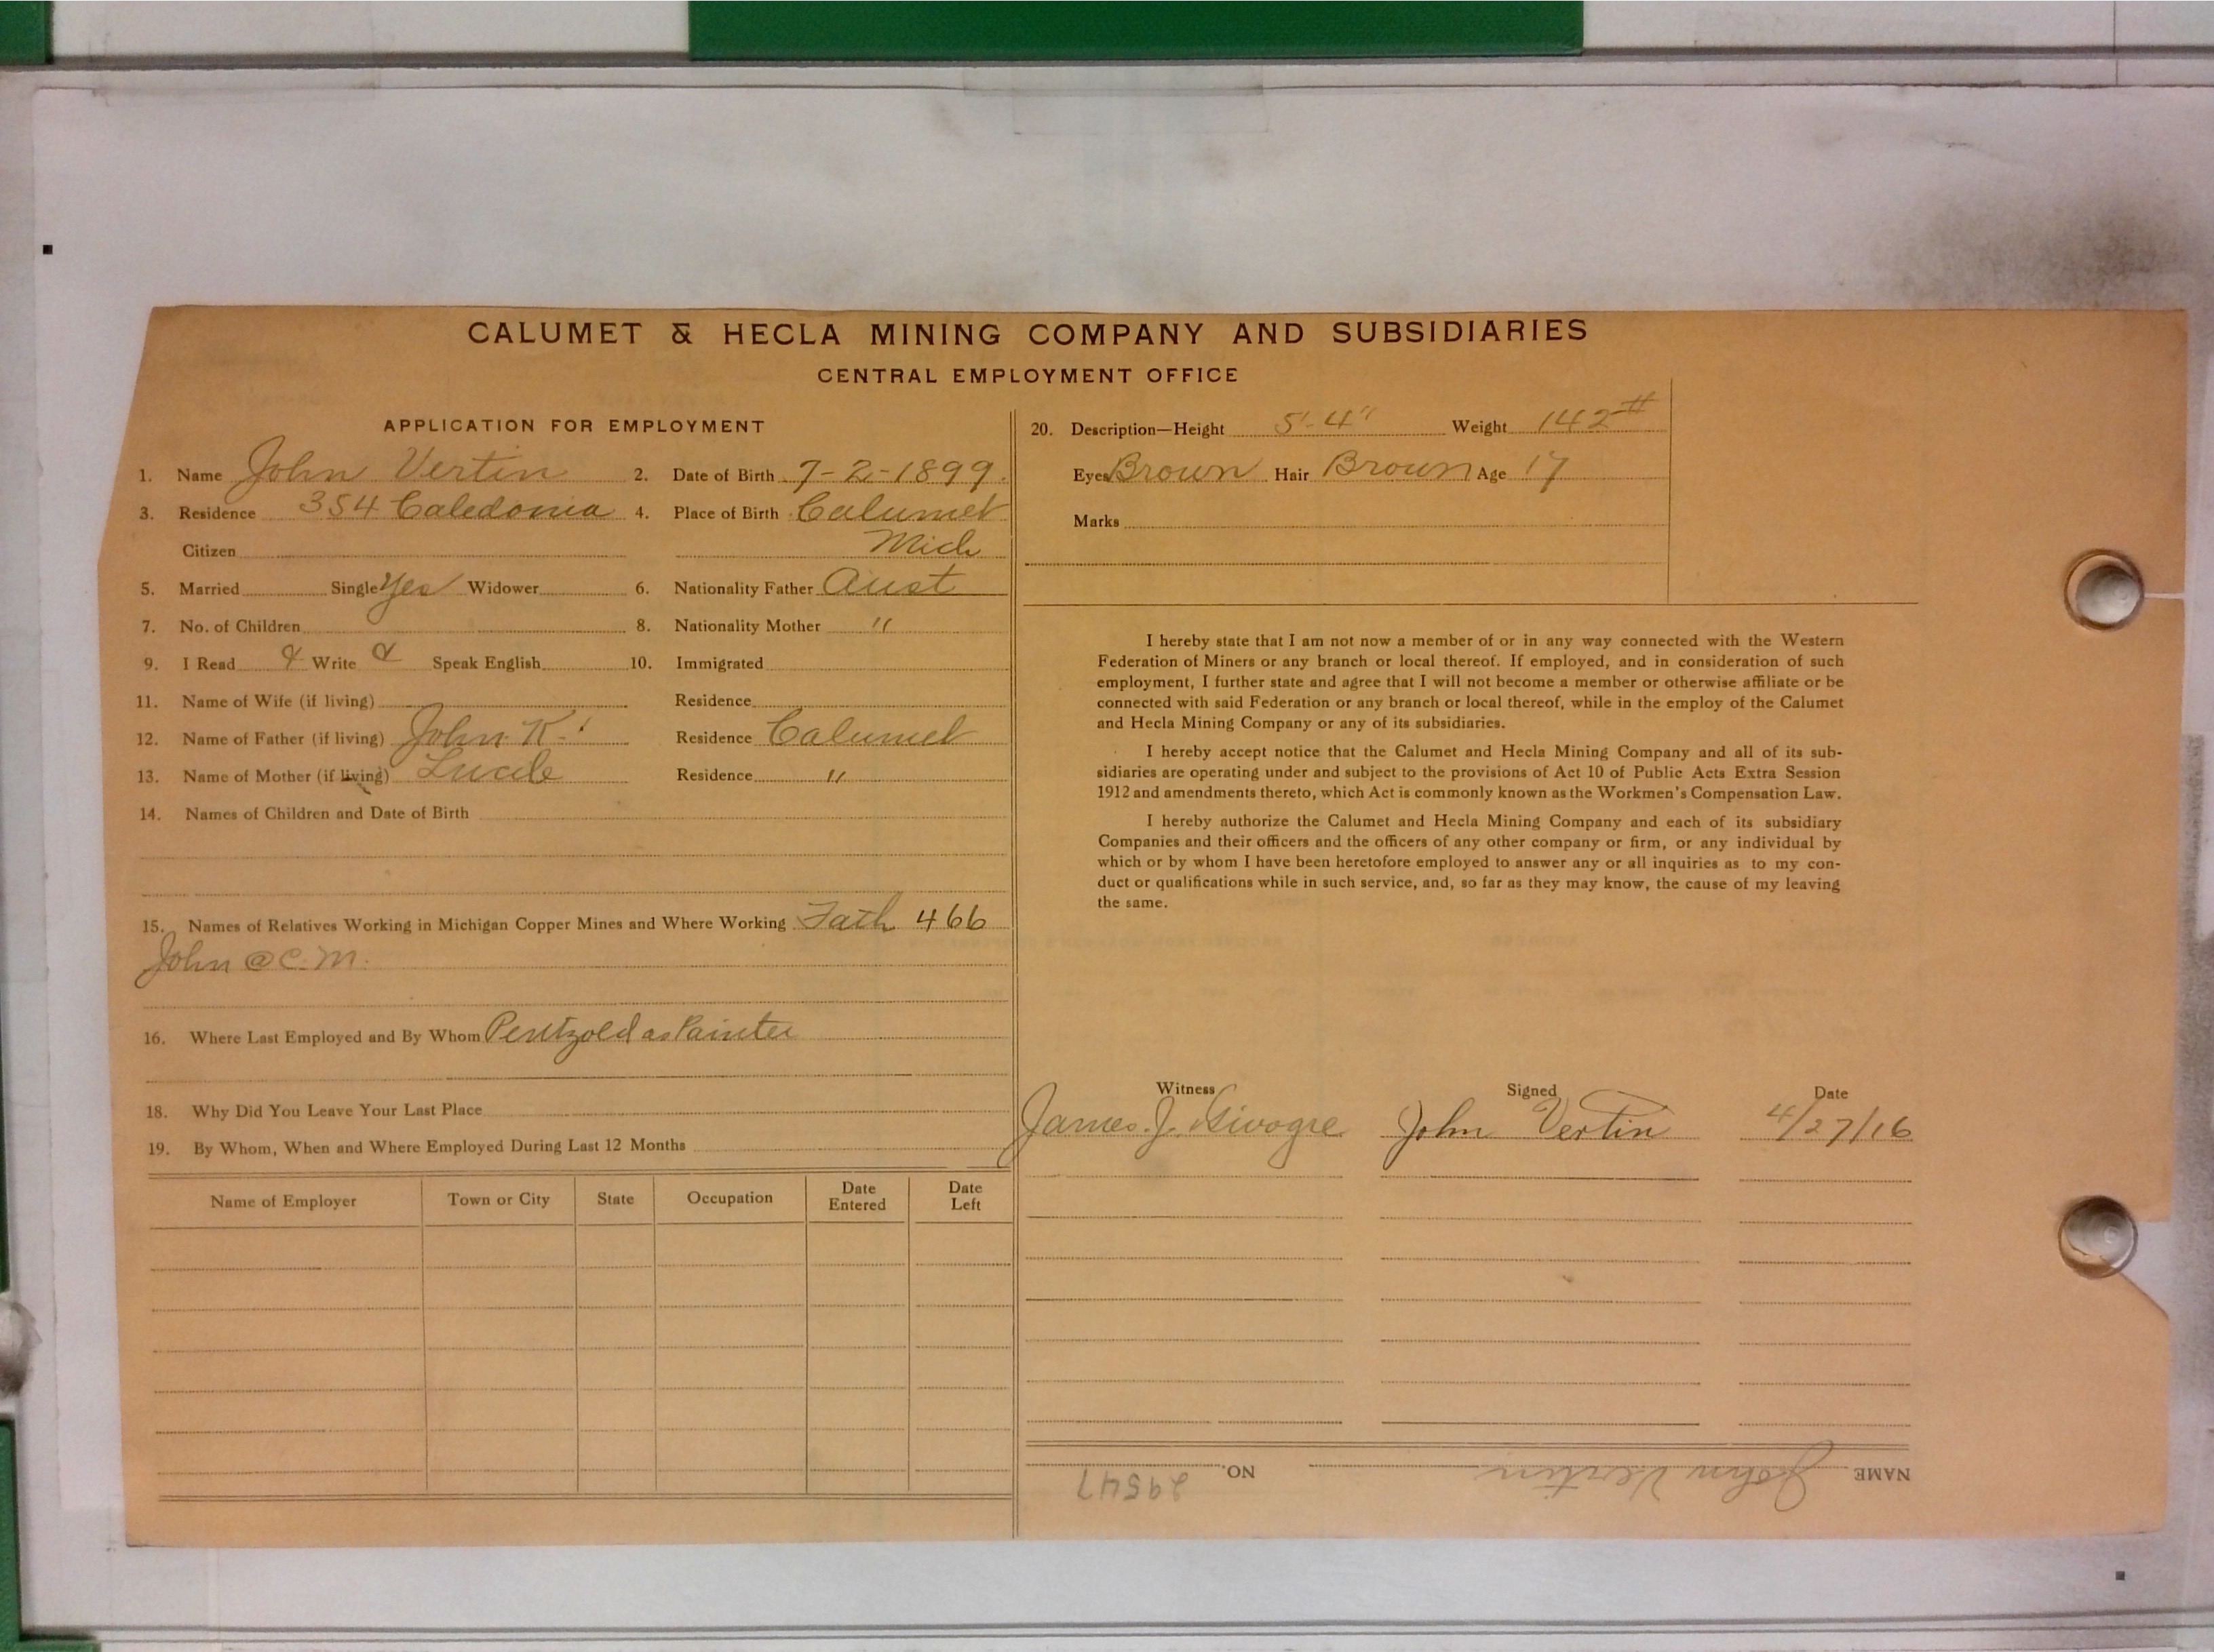 CALUMET & HECLA MINING COMPANY AND SUBSIDIARIES
CENTRAL EMPLOYMENT OFFICE
APPLICATION FOR EMPLOYMENT
1. Name John Vertin 2. Date of Birth 7-2-1899.
3. Residence 354 Caledonia 4. Place of Birth Calumet
Citizen Mich
5. Married Single Yes Widower 6. Nationality Father Aust
7. No. of Children 8. Nationality Mother "
9. I Read & Write & Speak English 10. Immigrated
11. Name of Wife (if living) Residence
12. Name of Father (if living) John K. Residence Calumet
13. Name of Mother (if living) Lucile Residence "
14. Names of Children and Date of Birth
15. Names of Relatives Working in Michigan Copper Mines and Where Working Fath 466
John @ C. M.
16. Where Last Employed and By Whom Pentzold as Painter
18. Why Did You Leave Your Last Place
19. By Whom, When and Where Employed During Last 12 Months
Name of Employer Town or City State Occupation Date Entered Date Left
20. Description—Height 5'-4" Weight 142#
Eyes Brown Hair Brown Age 17
Marks
I hereby state that I am not now a member of or in any way connected with the Western
Federation of Miners or any branch or local thereof. If employed, and in consideration of such
employment, I further state and agree that I will not become a member or otherwise affiliate or be
connected with said Federation or any branch or local thereof, while in the employ of the Calumet
and Hecla Mining Company or any of its subsidiaries.
I hereby accept notice that the Calumet and Hecla Mining Company and all of its sub-
sidiaries are operating under and subject to the provisions of Act 10 of Public Acts Extra Session
1912 and amendments thereto, which Act is commonly known as the Workmen's Compensation Law.
I hereby authorize the Calumet and Hecla Mining Company and each of its subsidiary
Companies and their officers and the officers of any other company or firm, or any individual by
which or by whom I have been heretofore employed to answer any or all inquiries as to my con-
duct or qualifications while in such service, and, so far as they may know, the cause of my leaving
the same.
Witness Signed Date
James. J. John Vertin 4/27/16
NAME John Vertin NO. 29547